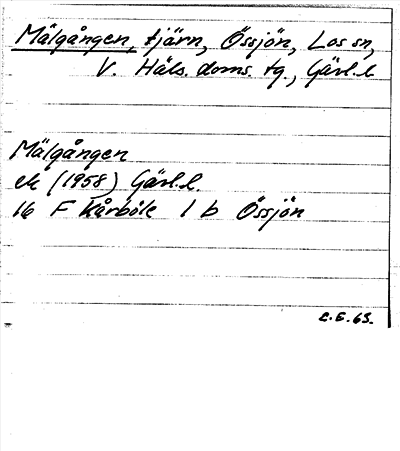 Mälgången, tjärn, Össjön, Los sn,
V. Häls. doms. tg., Gävl. l.
Mälgången
ek (1958) Gävl. l.
16 F Kårböle 1 b Össjön
C.E. 63.